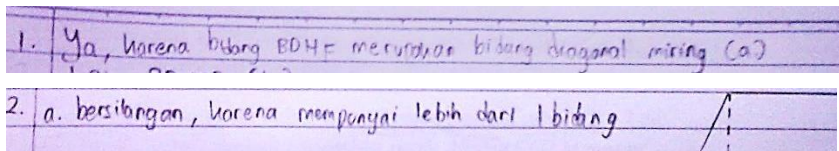 1. Ya, karena bidang BDHF merupakan bidang diagonal miring (a)
2. a. bersilangan, karena mempunyai lebih dari 1 bidang